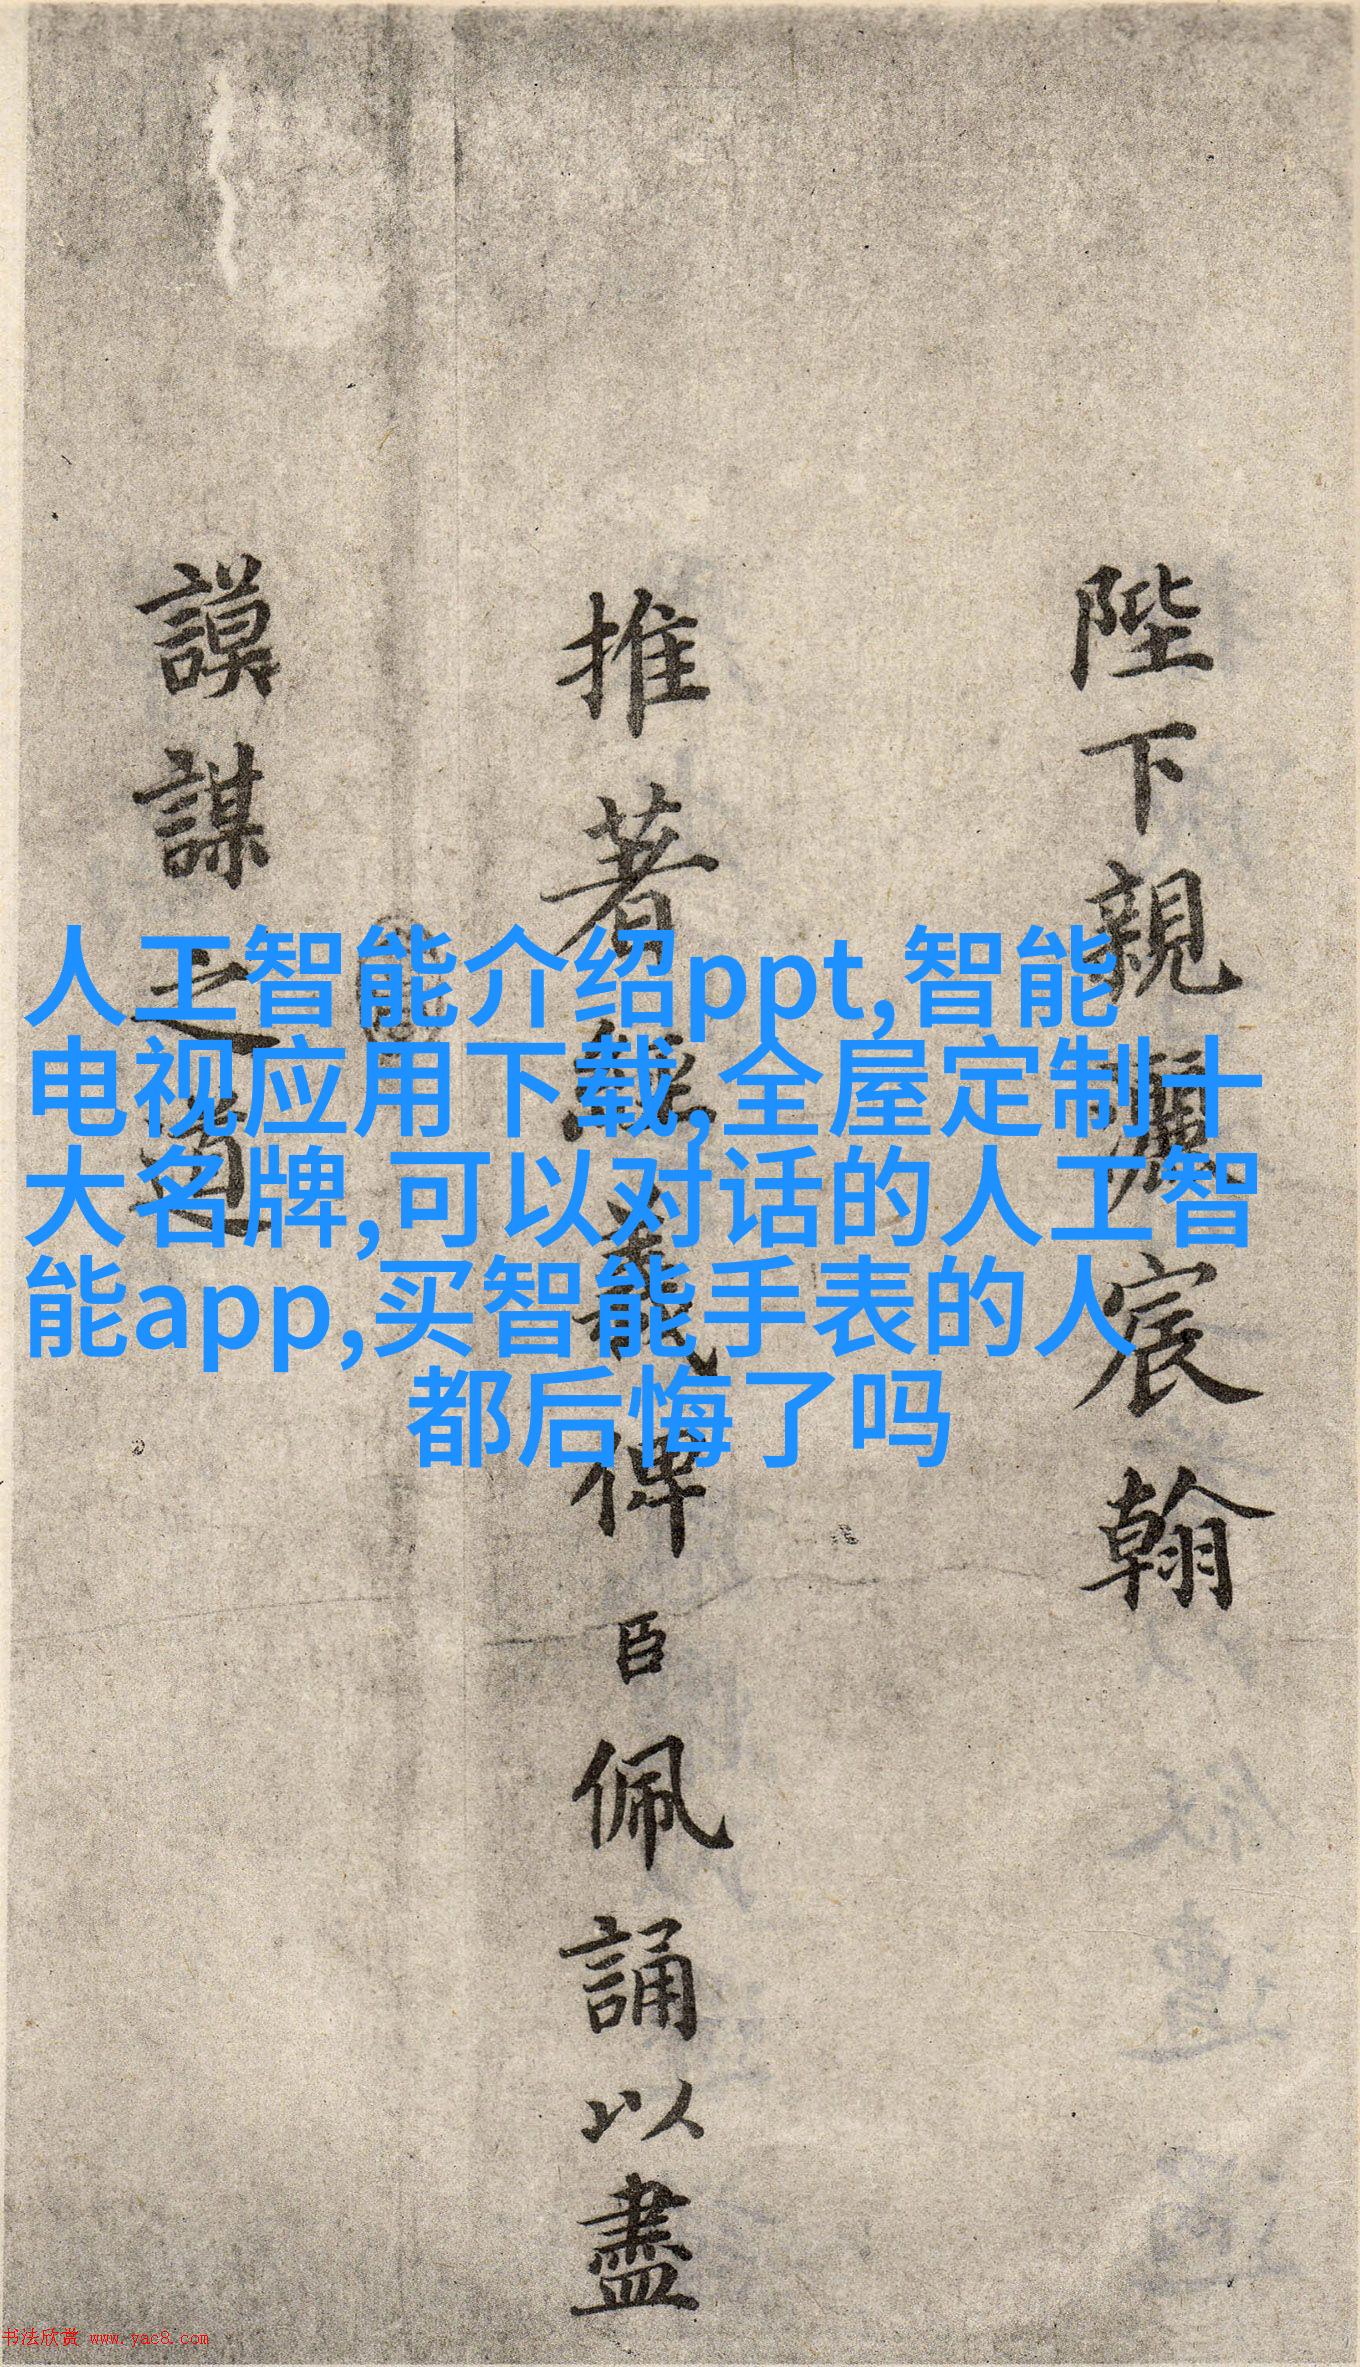 陛下親灑宸翰
推著經義俾臣佩誦以盡
謨謀之道
人工智能介绍ppt,智能
电视应用下载,全屋定制十
大名牌,可以对话的人工智
能app,买智能手表的人
都后悔了吗
书法欣赏 www.yac8.com